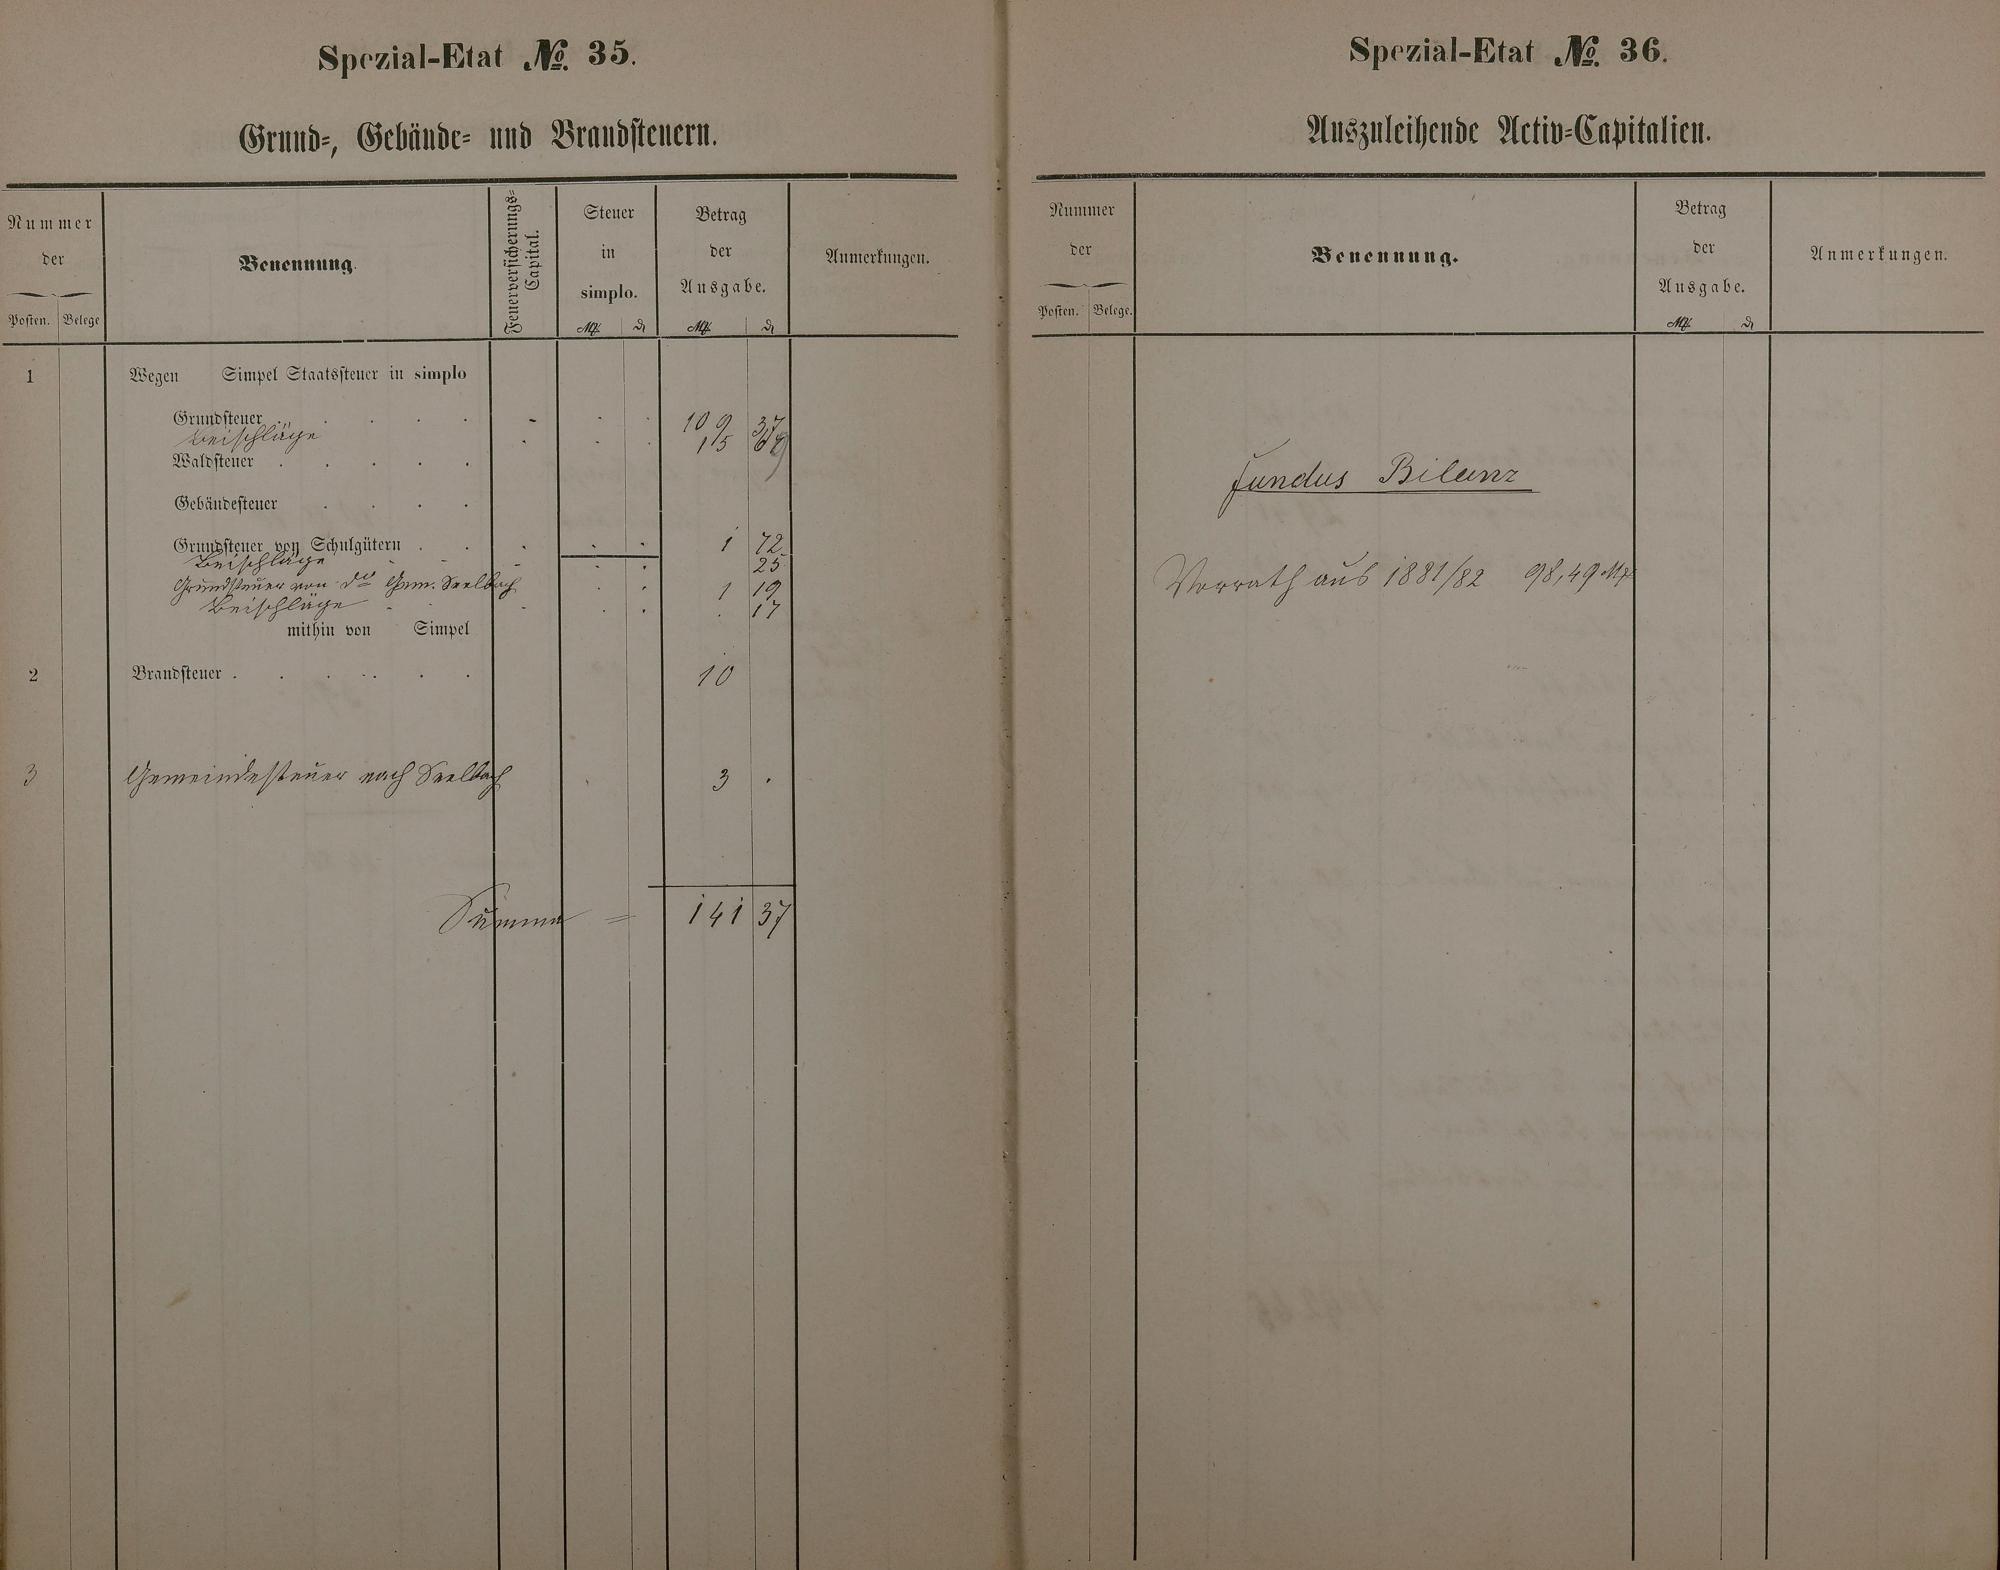 Spezial-Etat No. 35.
Grund-, Gebäude- und Brandsteuern.
Nummer
der
Posten. Belege
Benennung.
Feuerversicherungs-
Capital.
Steuer
in
simplo.
Mk. d
Betrag
der
Ausgabe.
Mk. d
Anmerkungen.
1 Wegen Simpel Staatssteuer in simplo
Grundsteuer . . . . 109 37
Beischläge 15 67
Waldsteuer . . . . .
Gebäudesteuer . . .
Grundsteuer von Schulgütern . . 1 72
Beischläge 25
Grundsteuer von do Gem. Seelbach 1 19
Beischläge . 17
mithin von Simpel
2 Brandsteuer . . . . . . 10
3 Gemeindesteuer nach Seelbach 3 .
Summa = 141 37
Spezial-Etat No. 36.
Auszuleihende Activ-Capitalien.
Nummer
der
Posten. Belege.
Benennung.
Betrag
der
Ausgabe.
Mk. d
Anmerkungen.
Fundus Bilanz
Vorrath aus 1881/82 98,49 Mk